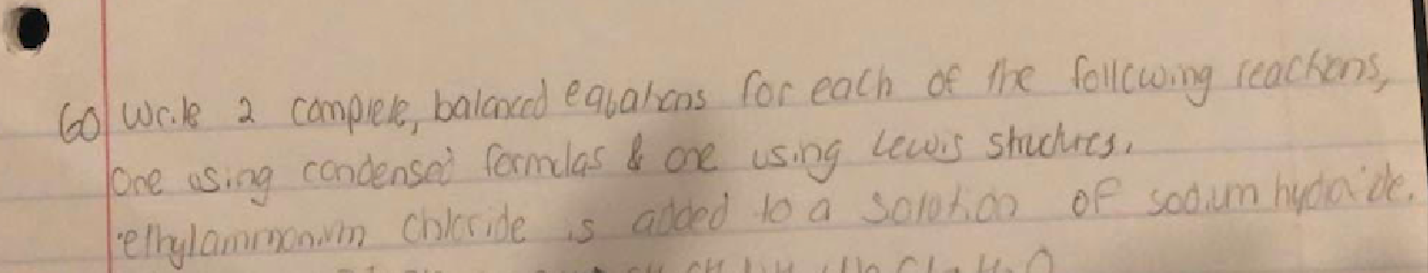 60 Write 2 complete, balanced equations for each of the following reactions,
one using condensed formulas & one using Lewis structures.
ethylammonium chloride is added to a solution of sodium hydroxide.